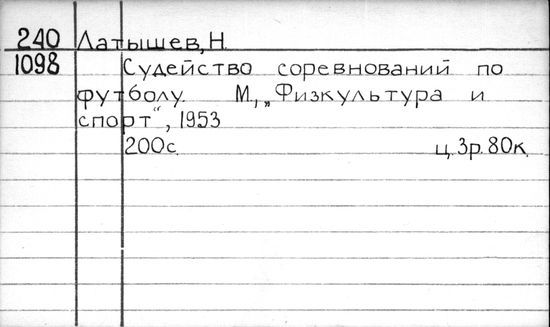 240 Латышев, Н.
1098 Судейство соревнований по
футболу. М., „Физкультура и
спорт“, 1953
200с. ц. 3р. 80к.